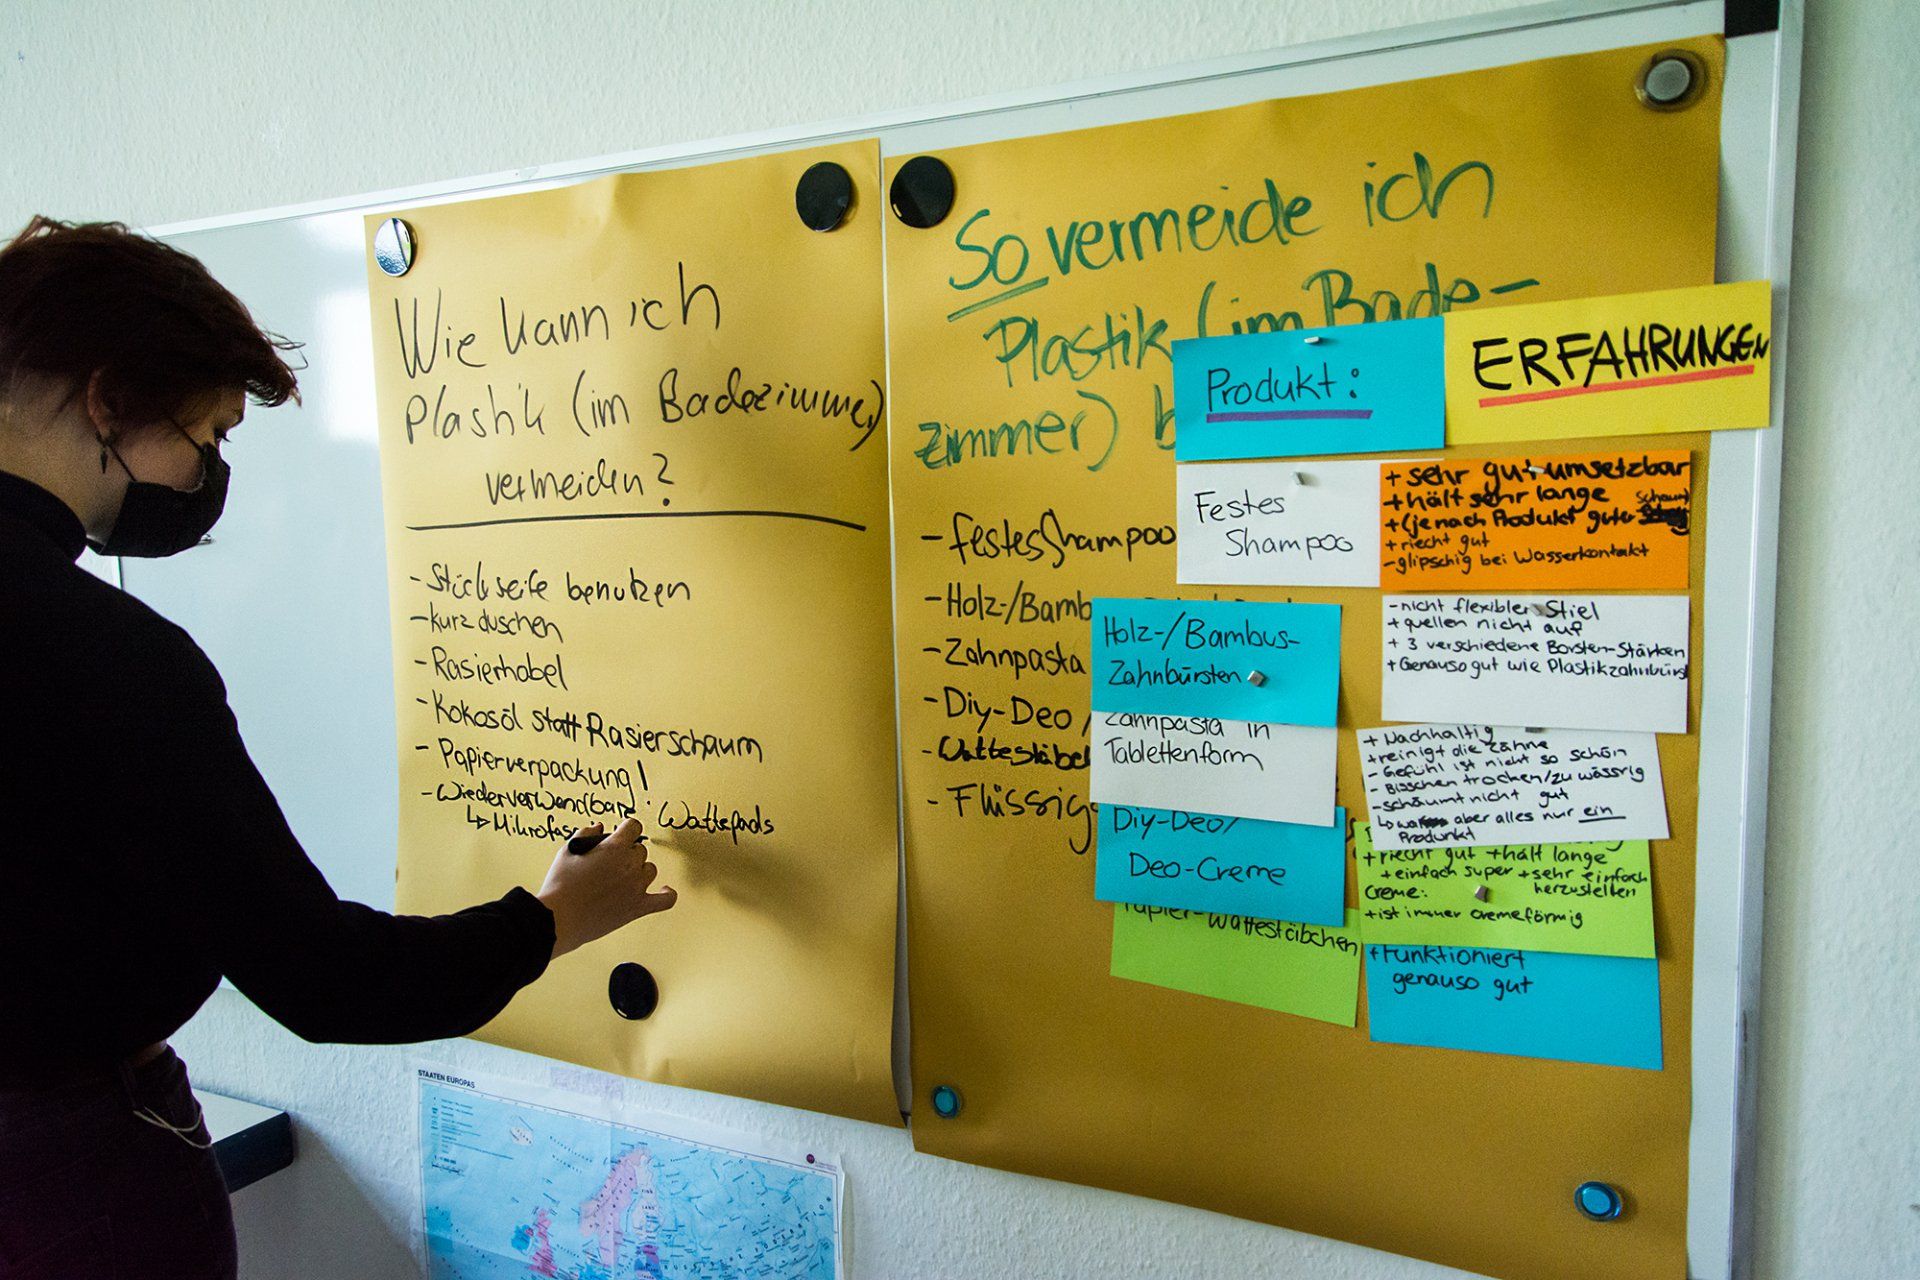 Wie kann ich
Plastik (im Badezimmer)
vermeiden?
- Stückseife benutzen
- kurz duschen
- Rasierhobel
- Kokosöl statt Rasierschaum
- Papierverpackung!
- Wiederverwendbare Wattepads
↳ Mikrofas
So vermeide ich
Plastik (im Bade-
zimmer) b
- festes Shampoo
- Holz-/Bamb
- Zahnpasta
- Diy-Deo /
- Wattestäbch
- Flüssig
Produkt:
ERFAHRUNGEN
Festes
Shampoo
+ sehr gut umsetzbar
+ hält sehr lange
+ (je nach Produkt guter Schaum)
+ riecht gut
- glipschig bei Wasserkontakt
Holz-/Bambus-
Zahnbürsten
- nicht flexibler Stiel
+ quellen nicht auf
+ 3 verschiedene Borsten-Stärken
+ Genauso gut wie Plastikzahnbürst
Zahnpasta in
Tablettenform
+ Nachhaltig
+ reinigt die Zähne
- Gefühl ist nicht so schön
- Bisschen trocken/zu wässrig
- schäumt nicht gut
↳ aber alles nur ein
Produnkt
Diy-Deo/
Deo-Creme
+ riecht gut + hält lange
+ einfach super + sehr einfach
herzustellen
Creme:
+ ist immer cremeförmig
Papier-Wattestäbchen
+ Funktioniert
genauso gut
STAATEN EUROPAS